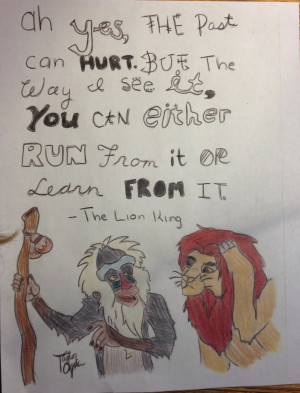 ah yes, THE Past
can HURT. BUT The
Way I see it,
You CAN either
RUN From it OR
Learn FROM IT.
- The Lion King